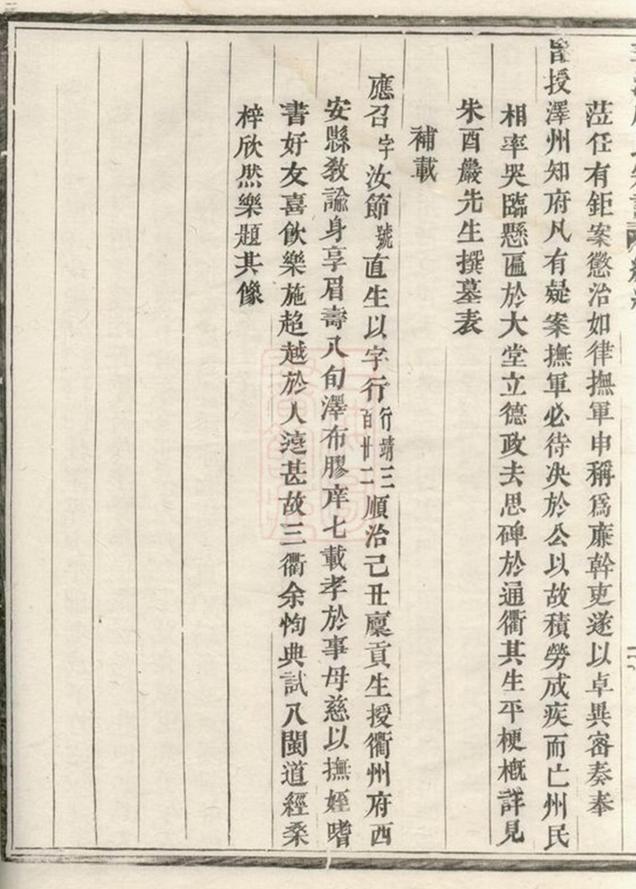 蒞任有鉅案懲治如律撫軍申稱爲廉幹吏遂以卓異審奏奉
旨授澤州知府凡有疑案撫軍必待决於公以故積勞成疾而亡州民
相率哭臨懸匾於大堂立德政去思碑於通衢其生平梗槪詳見
朱酉嚴先生撰墓表
補載
應召字汝節號直生以字行行靖三百廿二順治己丑廩貢生授衢州府西
安縣教諭身享眉壽八旬澤布膠庠七載孝於事母慈以撫姪嗜
書好友喜飲樂施超越於人遠甚故三衢余恂典試八閩道經桑
梓欣然樂題其像